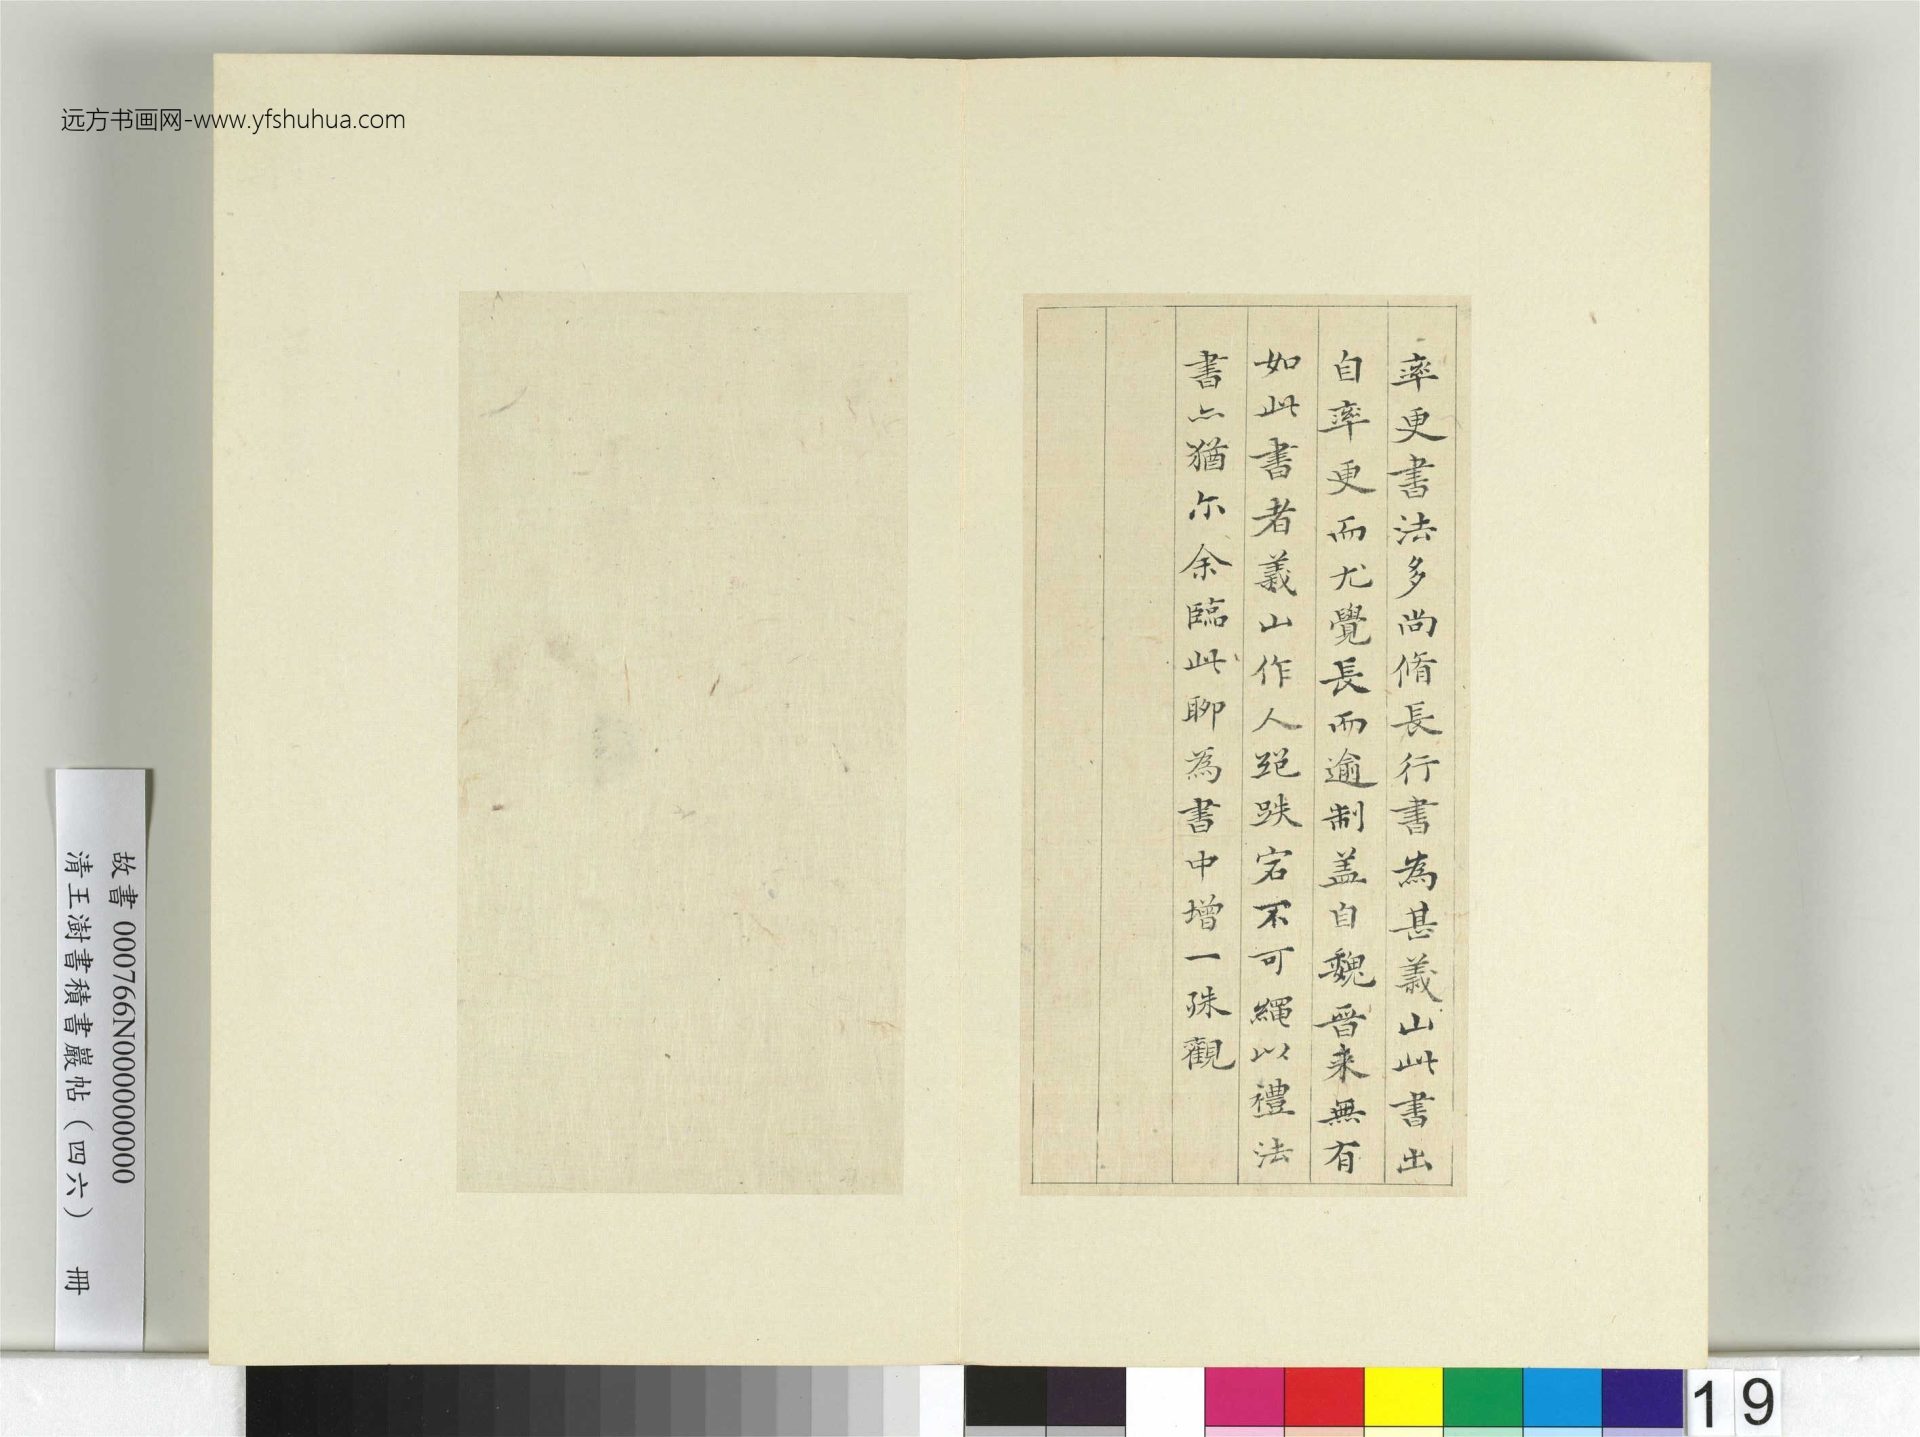 远方书画网-www.yfshuhua.com
率更書法多尚脩長行書為甚義山此書出
自率更而尤覺長而逾制盖自魏晋来無有
如此書者義山作人跌宕不可繩以禮法
書亠猶尓余臨此聊為書中增一殊觀
故書 000766N000000000
清王澍書積書巖帖（四六） 冊
19